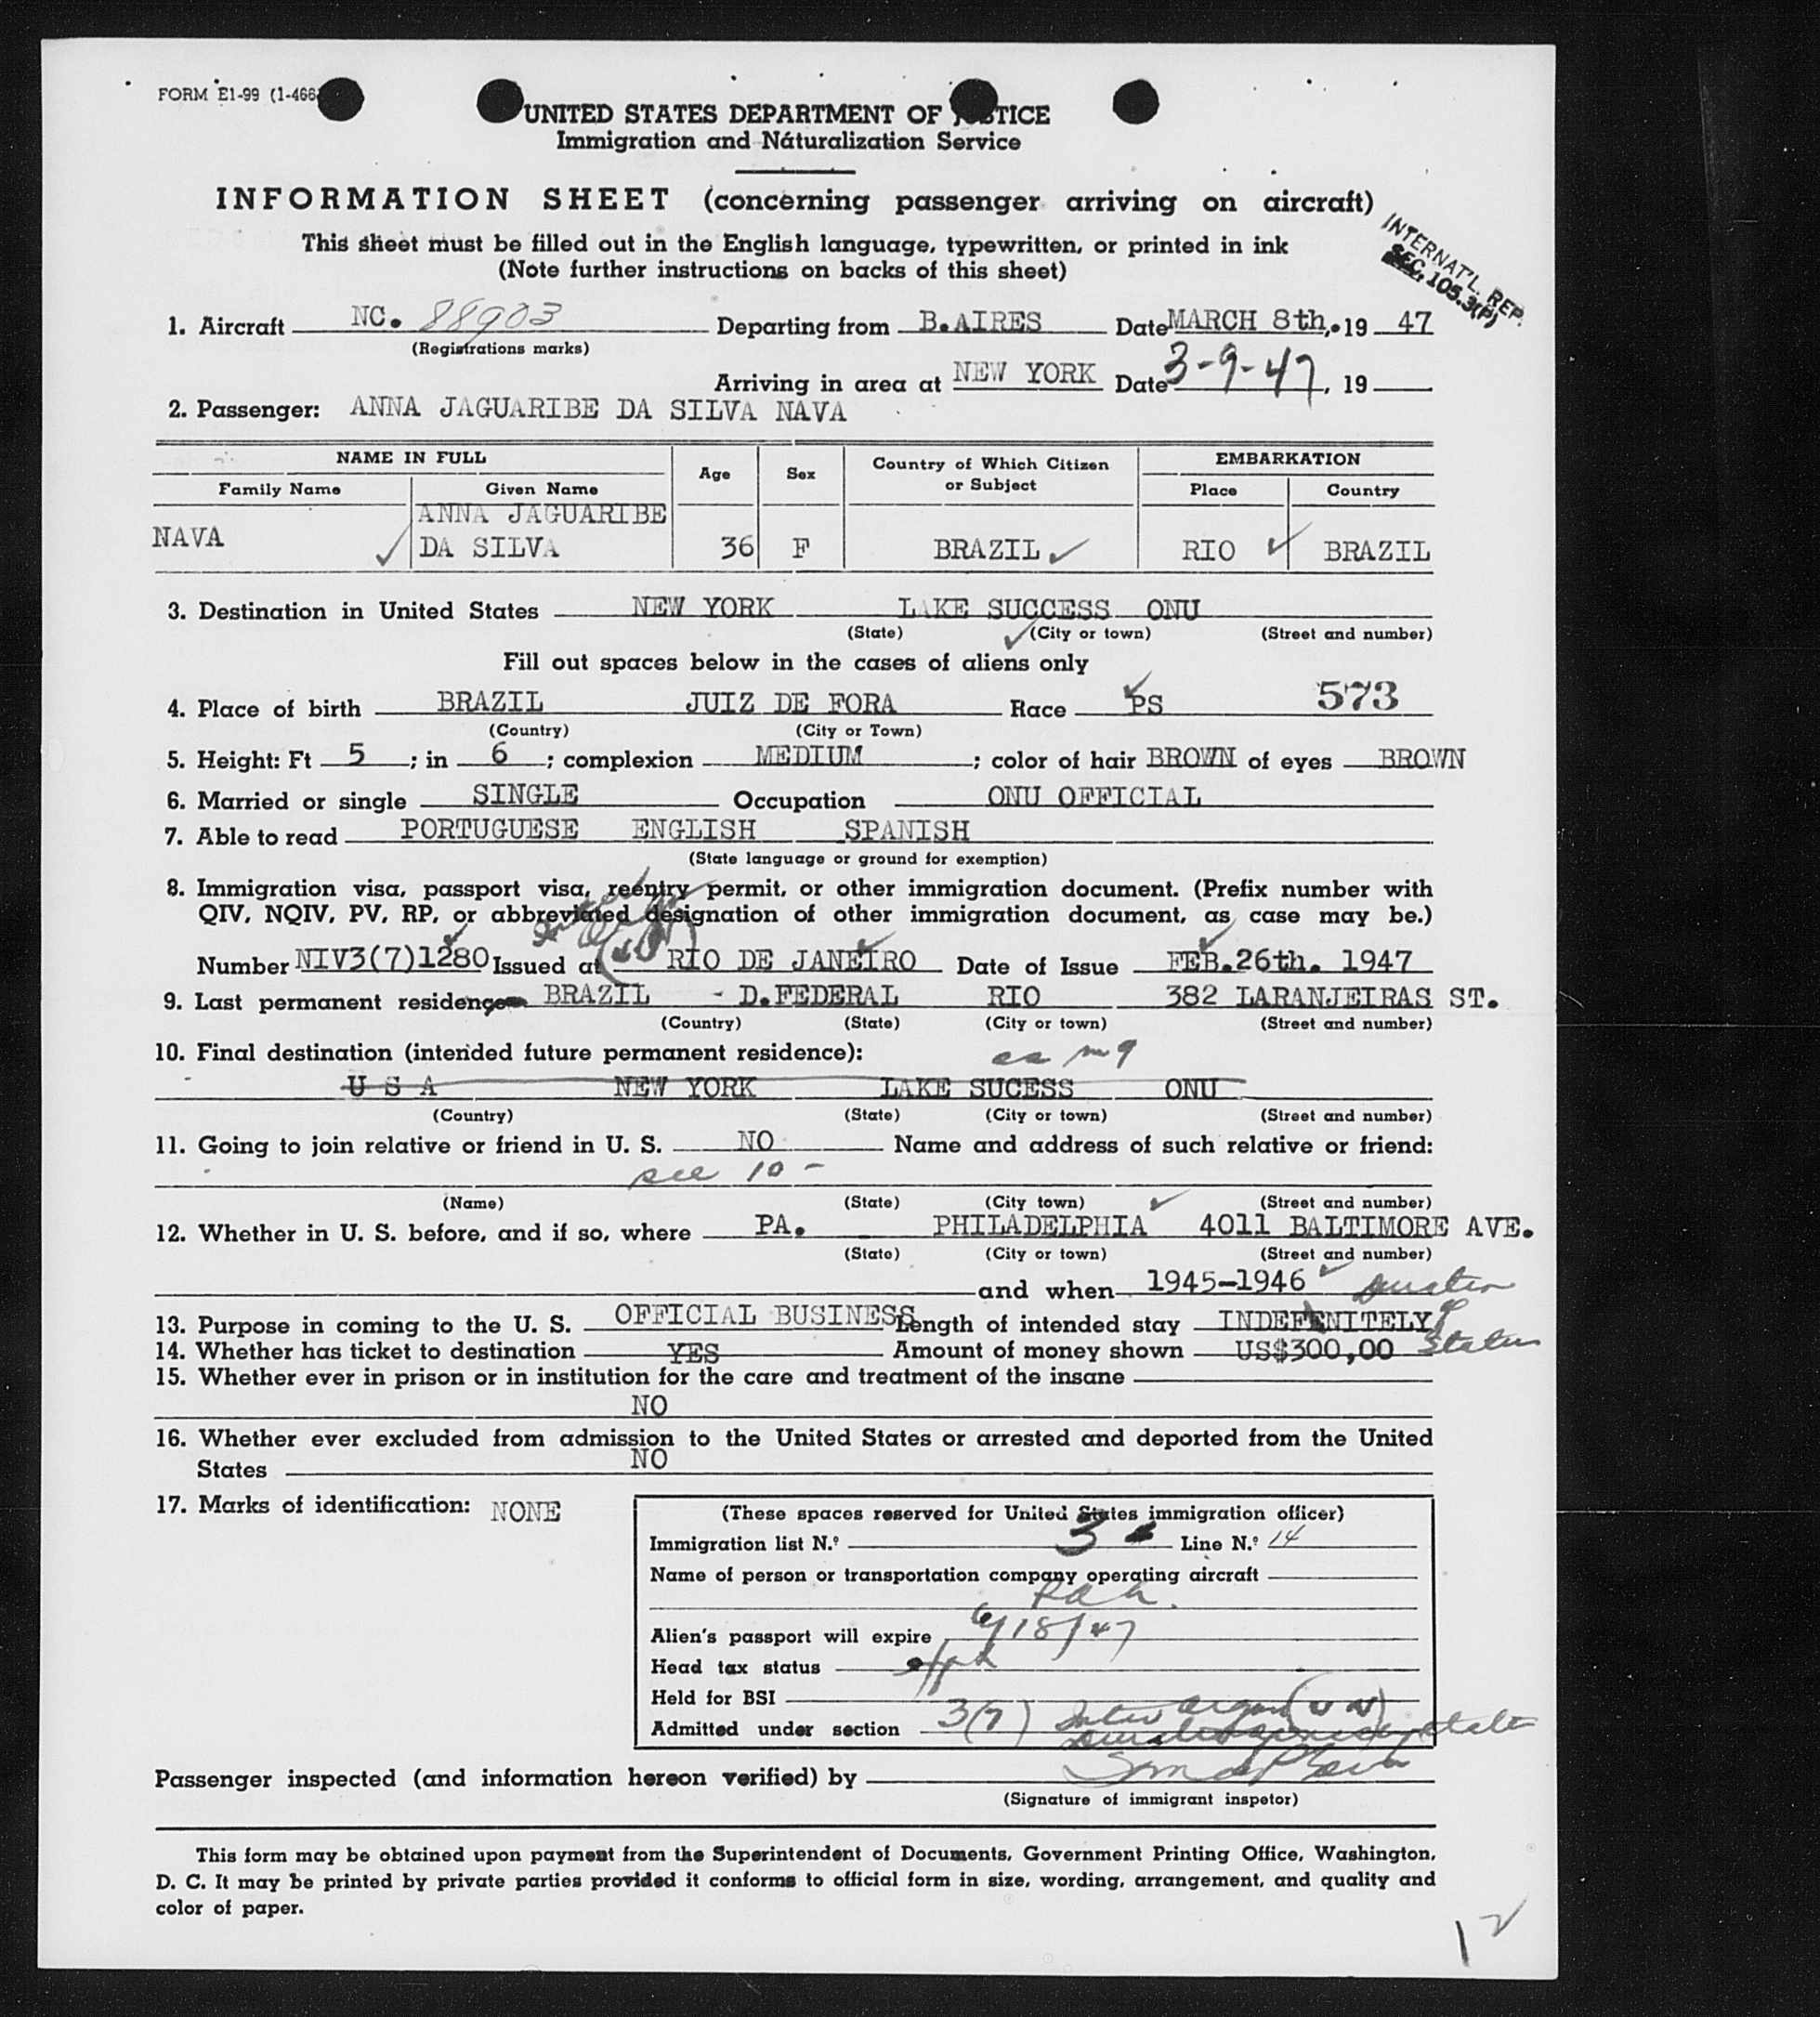 FORM E1-99 (1-466
UNITED STATES DEPARTMENT OF JUSTICE
Immigration and Naturalization Service
INFORMATION SHEET (concerning passenger arriving on aircraft)
This sheet must be filled out in the English language, typewritten, or printed in ink
(Note further instructions on backs of this sheet)
INTERNAT'L. REP.
SEC. 105.3(P)
1. Aircraft NC. 88903 Departing from B.AIRES Date MARCH 8th,.19 47
(Registrations marks)
Arriving in area at NEW YORK Date 3-9-47, 19
2. Passenger: ANNA JAGUARIBE DA SILVA NAVA
NAME IN FULL Age Sex Country of Which Citizen or Subject EMBARKATION
Family Name Given Name Place Country
ANNA JAGUARIBE
NAVA DA SILVA 36 F BRAZIL RIO BRAZIL
3. Destination in United States NEW YORK LAKE SUCCESS ONU
(State) (City or town) (Street and number)
Fill out spaces below in the cases of aliens only
4. Place of birth BRAZIL JUIZ DE FORA Race PS 573
(Country) (City or Town)
5. Height: Ft 5 ; in 6 ; complexion MEDIUM ; color of hair BROWN of eyes BROWN
6. Married or single SINGLE Occupation ONU OFFICIAL
7. Able to read PORTUGUESE ENGLISH SPANISH
(State language or ground for exemption)
8. Immigration visa, passport visa, reentry permit, or other immigration document. (Prefix number with
QIV, NQIV, PV, RP, or abbreviated designation of other immigration document, as case may be.)
Number NIV3(7)1280 Issued at RIO DE JANEIRO Date of Issue FEB.26th. 1947
9. Last permanent residence BRAZIL - D.FEDERAL RIO 382 LARANJEIRAS ST.
(Country) (State) (City or town) (Street and number)
10. Final destination (intended future permanent residence):
U S A NEW YORK LAKE SUCESS ONU
(Country) (State) (City or town) (Street and number)
11. Going to join relative or friend in U. S. NO Name and address of such relative or friend:
see 10 -
(Name) (State) (City town) (Street and number)
12. Whether in U. S. before, and if so, where PA. PHILADELPHIA 4011 BALTIMORE AVE.
(State) (City or town) (Street and number)
and when 1945-1946 Duration
13. Purpose in coming to the U. S. OFFICIAL BUSINESS Length of intended stay INDEFENITELY of
14. Whether has ticket to destination YES Amount of money shown US$300,00 Status
15. Whether ever in prison or in institution for the care and treatment of the insane
NO
16. Whether ever excluded from admission to the United States or arrested and deported from the United
States NO
17. Marks of identification: NONE
(These spaces reserved for United States immigration officer)
Immigration list N.º 3 Line N.º 14
Name of person or transportation company operating aircraft
PAA.
Alien's passport will expire 6/18/47
Head tax status
Held for BSI
Admitted under section 3(7) (UN)
Passenger inspected (and information hereon verified) by
(Signature of immigrant inspetor)
This form may be obtained upon payment from the Superintendent of Documents, Government Printing Office, Washington,
D. C. It may be printed by private parties provided it conforms to official form in size, wording, arrangement, and quality and
color of paper.